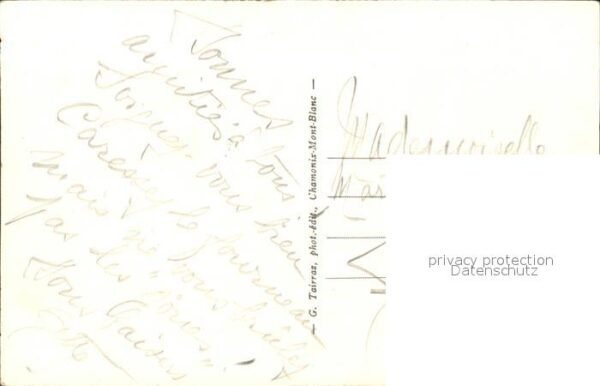 Bonnes
amitiés à tous
Soignez-vous bien
Caressez le fourneau
mais ne vous brûlez
pas les
Bons Baisers
— G. Tairraz, phot.-édit., Chamonix-Mont-Blanc —
Mademoiselle
M
privacy protection
Datenschutz